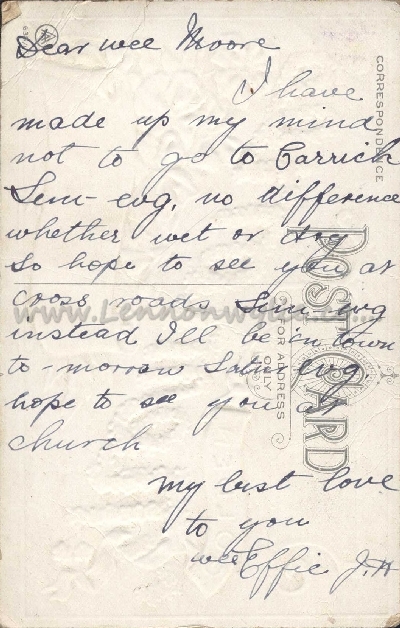 Dear wee Moore
I have
made up my mind
not to go to Carrick
Sun-evg, no difference
whether wet or dry
so hope to see you at
cross roads Sun-evg
instead I'll be in town
to-morrow Satur evg
hope to see you at
church
my best love
to you
wee Effie J.H
CORRESPONDENCE
POST CARD
FOR ADDRESS
ONLY